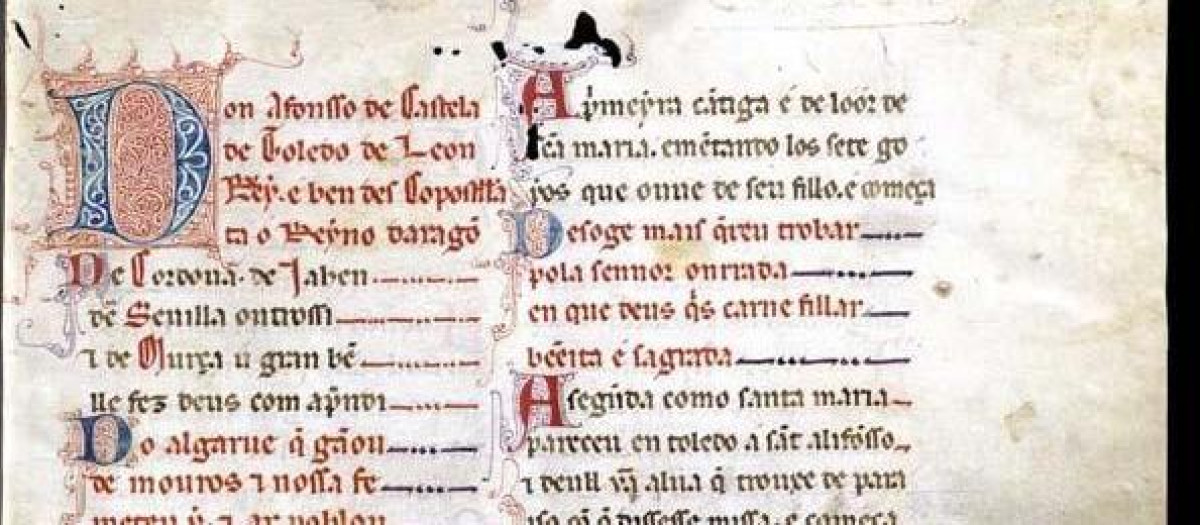 Don Afonsso de Castela
de Toledo de Leon
Rey. e ben des Copostela
ta o Reyno daragō
De Cordoua. de Jahen
de Seuilla outrossi
⁊ de Murça u gran bē
lle fez deus com ap̄ndi
Do algarue q̄ gāou
de mouros ⁊ nossa fe
meteu ẏ. ⁊ ar poblou
A p̄meyra cātiga é de loor de
sc̄a maria. emētando los sete go
yos que ouue de seu fillo. e começa
Desoge mais q̄reu trobar
pola sennor onrrada
en que deus q̄s carne fillar
bēeita e sagrada
A segūda como santa maria
pareceu en toledo a sāt alifōsso
⁊ deull' alua q̄ trouxe de para
yso cō q̄ dissesse missa. e comeca